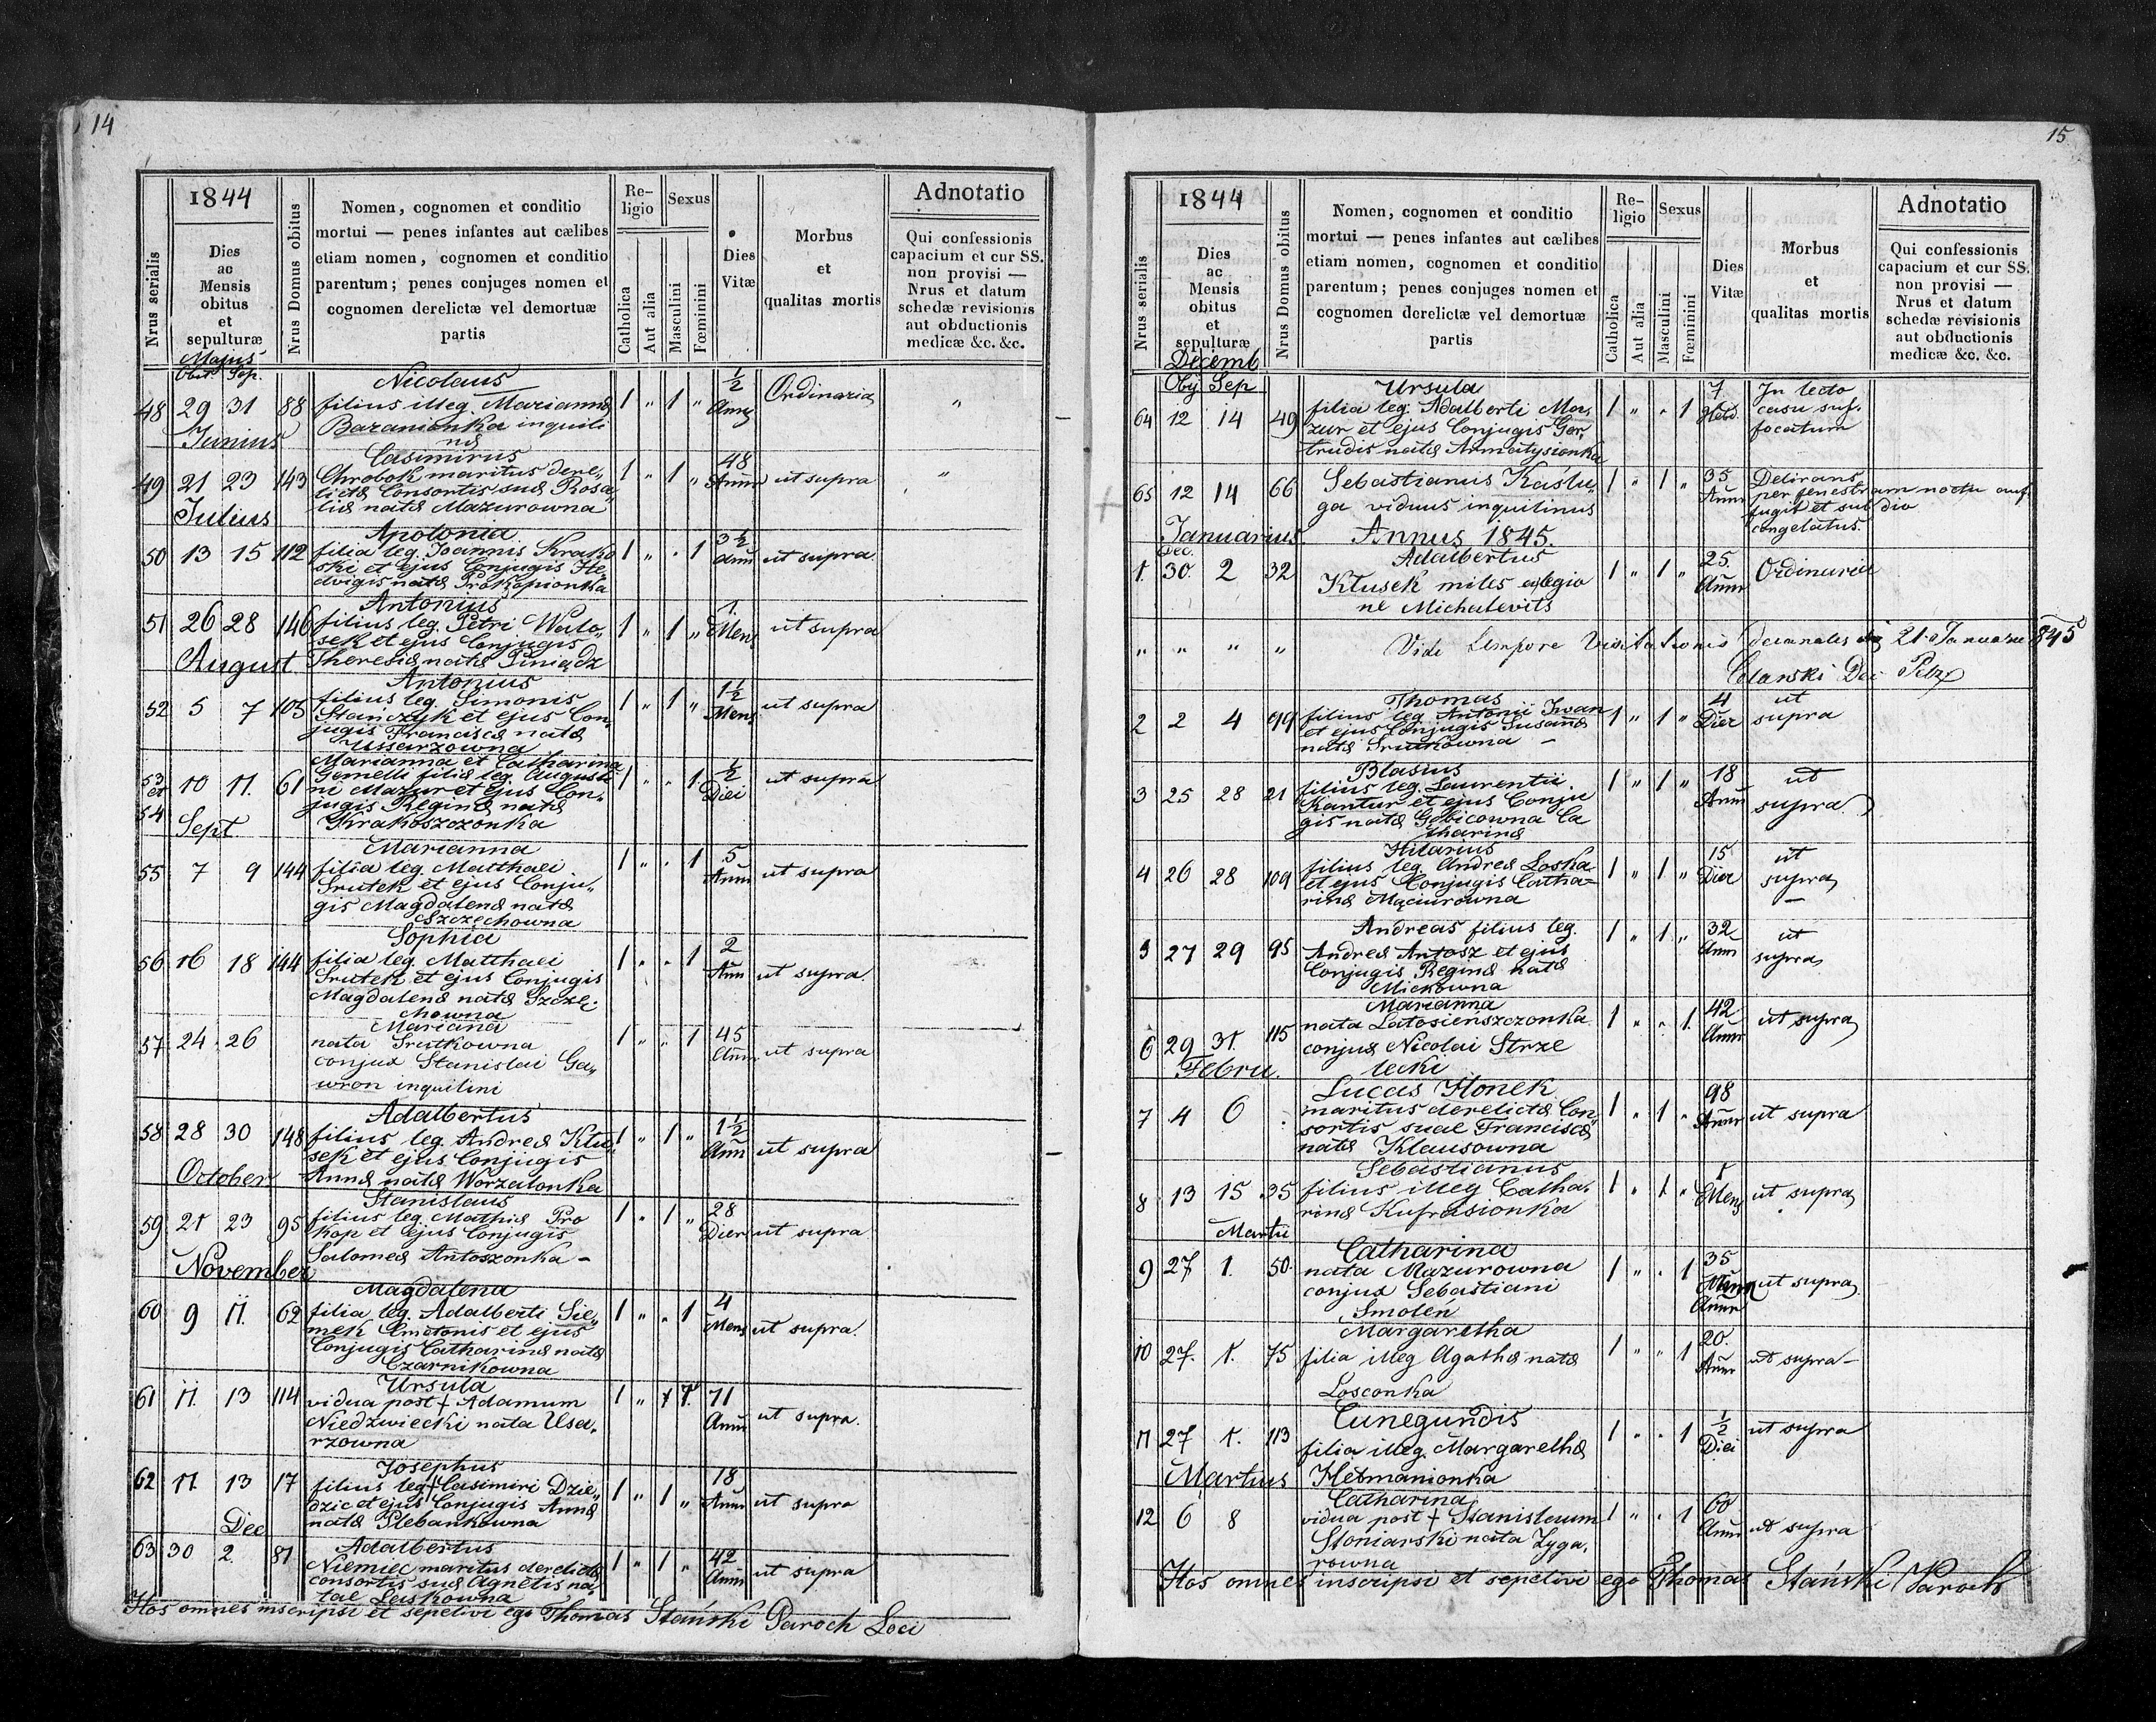 14
1844
Nrus serialis
Dies
ac
Mensis
obitus
et
sepulturæ
Nrus Domus obitus
Nomen, cognomen et conditio
mortui — penes infantes aut cælibes
etiam nomen, cognomen et conditio
parentum; penes conjuges nomen et
cognomen derelictæ vel demortuæ
partis
Re-
ligio
Catholica
Aut alia
Sexus
Masculini
Fœminini
Dies
Vitæ
Morbus
et
qualitas mortis
Adnotatio
Qui confessionis
capacium et cur SS.
non provisi —
Nrus et datum
schedæ revisionis
aut obductionis
medicæ &c. &c.
Majus
Obit Sep.
Nicolaus
48 29 31 88 filius illeg. Mariannæ 1 " 1 " ½ Anni Ordinaria "
Baranionka inquili
næ
Junius
Casimirus
49 21 23 143 Chrobok maritus dere„ 1 " 1 " 48 Annor ut supra "
lictæ Consortis suæ Rosa„
liæ natæ Mazurowna
Julius
Apolonia
50 13 15 112 filia leg. Joannis Krako 1 " " 1 3½ Ann ut supra.
ski et ejus Conjugis He„
dvigis natæ Prokopionka
Antonius
51 26 28 146 filius leg. Petri Walo„ 1 " 1 " 1. Mens ut supra
sek et ejus Conjugis
Theresiæ natæ Piniądz
August
Antonius
52 5 7 105 filius leg. Simonis 1 " 1 " 1½ Mens ut supra
Stanczyk et ejus Con„
jugis Franciscæ natæ
Ussarzowna
Marianna et Catharina
53 et 54 10 11. 61 Gemelli filiæ leg. Augusti 1 " " 1. ½ Diei ut supra
ni Mazur et ejus Con„
jugis Reginæ natæ
Krakoszczonka
Sept
Marianna
55 7 9 144 filia leg. Matthaei 1 " " 1 5 Ann ut supra
Srutek et ejus Conju„
gis Magdalenæ natæ
Szczechowna
Sophia
56 16 18 144 filia leg. Matthaei 1 " " 1 2 Ann ut supra.
Srutek et ejus Conjugis
Magdalenæ natæ Szcze„
chowna
Mariana
57 24 26 nata Srutkowna 1 " " 1 45 Ann ut supra
conjux Stanislai Ga„
wron inquilini
Adalbertus
58 28 30 148 filius leg. Andreæ Kłu„ 1 " 1 " 1½ Ann ut supra
sek et ejus Conjugis
Annæ natæ Worzalonka
October
Stanislaus
59 21 23 95 filius leg. Mathiæ Pro 1 " 1 " 28 Dier ut supra
kop et ejus Conjugis
Salomeæ Antoszonka —
November
Magdalena
60 9 11. 62 filia leg. Adalberti Sie„ 1 " " 1 4 Mens ut supra.
mek Cmetonis et ejus
Conjugis Catharinæ natæ
Czarnikowna
Ursula
61 11. 13 114 vidua post † Adamum 1 " 1. 71 Ann ut supra.
Niedzwiecki nata Usa„
rzowna
Josephus
62 11. 13 17 filius leg † Casimiri Dzie„ 1 " 1 " 18 Annor ut supra
dzic et ejus Conjugis Annæ
natæ Plebankowna
Dec
Adalbertus
63 30 2. 81 Niemiec maritus derelictæ 1 " 1 " 42 Ann ut supra
consortis suæ Agnetis na„
tae Laskowna
Hos omnes inscripsi et sepelivi ego Thomas Stański Paroch Loci
15
1844
Nrus serialis
Dies
ac
Mensis
obitus
et
sepulturæ
Nrus Domus obitus
Nomen, cognomen et conditio
mortui — penes infantes aut cælibes
etiam nomen, cognomen et conditio
parentum; penes conjuges nomen et
cognomen derelictæ vel demortuæ
partis
Re-
ligio
Catholica
Aut alia
Sexus
Masculini
Fœminini
Dies
Vitæ
Morbus
et
qualitas mortis
Adnotatio
Qui confessionis
capacium et cur SS.
non provisi —
Nrus et datum
schedæ revisionis
aut obductionis
medicæ &c. &c.
Decemb
Obij Sep
Ursula
64 12 14 49 filia leg. Adalberti Ma„ 1 " " 1 7 Hebd. In lecto
zur et ejus Conjugis Ger„ casu suf„
trudis natæ Armatysionka focatum
65 12 14 66 Sebastianus Kaślu„ 1 " 1 " 35 Annor Delirans
ga viduus inquilinus per fenestram noctu auf„
fugit et sub dio
congelatus.
Januarius Annus 1845.
Dec.
Adalbertus
1. 30. 2 32 Kłusek miles e legio 1 " 1 " 25. Annor Ordinaria
ne Michalevits
" " " " Vidi tempore Visitationis decanales 21. Januarii 845
Thomas
2 2 4 99 filius leg. Antonii Iwan 1 " 1 " 4 Dier ut supra
et ejus Conjugis Susannæ
natæ Srutkowna —
Blasius
3 25 28 21 filius leg. Laurentii 1 " 1 " 18 Ann ut supra
Kantur et ejus Conju
gis natæ Gobicowna Ca
tharinæ
Hilarius
4 26 28 109 filius leg. Andreæ Loska 1 " 1 " 15 Dier ut supra
et ejus Conjugis Catha=
rinæ Mąciurowna
Andreas filius leg.
5 27 29 95 Andreæ Antosz et ejus 1 " 1 " 32 Annor ut supra
Conjugis Reginæ natæ
Mickowna
Marianna
6 29 31. 115 nata Latosieńszczonka 1 " " 1. 42 Annor ut supra
conjux Nicolai Strze
lecki
Febru.
Lucas Honek
7 4 6 maritus derelictæ Con„ 1 " 1 " 98 Annor ut supra
sortis suae Franciscæ
natæ Klausowna
Sebastianus
8 13 15 35 filius illeg Catha„ 1 " 1 " 1 Mens ut supra
rinæ Kufrasionka
Martii
Catharina
9 27 1. 50. nata Mazurowna 1 " " 1 35 Annor ut supra
conjux Sebastiani
Smoleń
Margaretha
10 27. 1. 75 filia illeg Agathæ natæ 1 " " 1 20. Annor ut supra —
Losconka
Cunegundis
11 27 1. 113 filia illeg. Margarethæ 1 " " 1 ½ Diei ut supra
Hetmanionka
Martius
Catharina
12 6 8 vidua post † Stanislaum 1 " " 1 60 Annor ut supra
Stoniarski nata Zyga„
rowna
Hos omnes inscripsi et sepelivi ego Thomas Stański Paroch